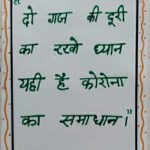 "दो गज की दूरी
का रखे ध्यान
यही है कोरोना
का समाधान।"